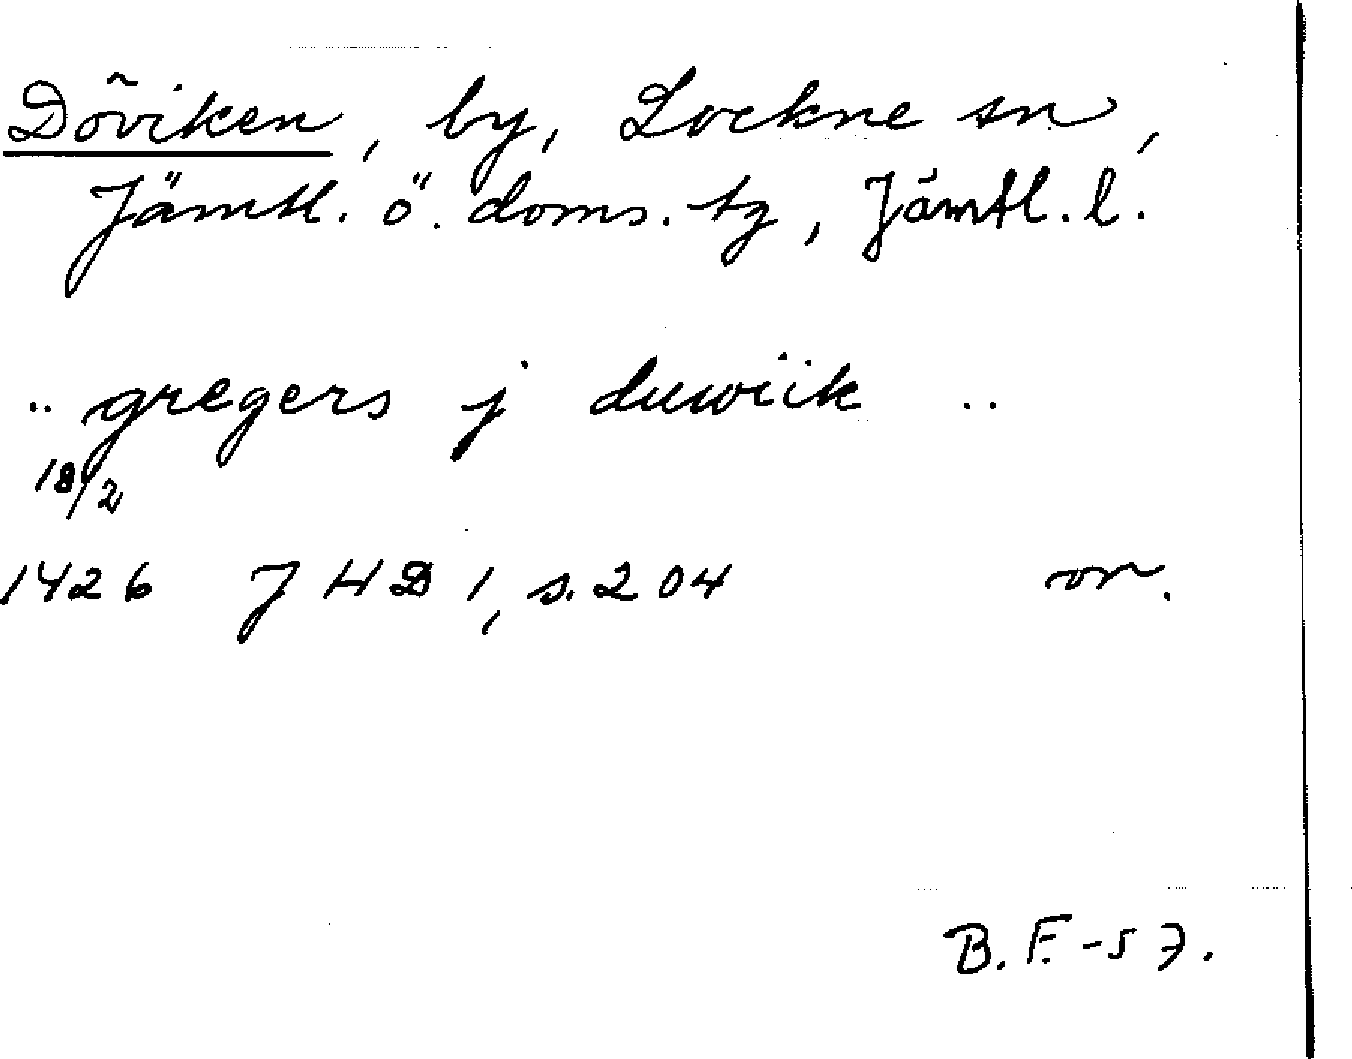 Döviken, by, Lockne sn,
Jämtl. ö. doms. tg, Jämtl. l.
.. gregers j duwiik ..
18/2
1426 JHD 1, s. 204 or.
B. F. -57.